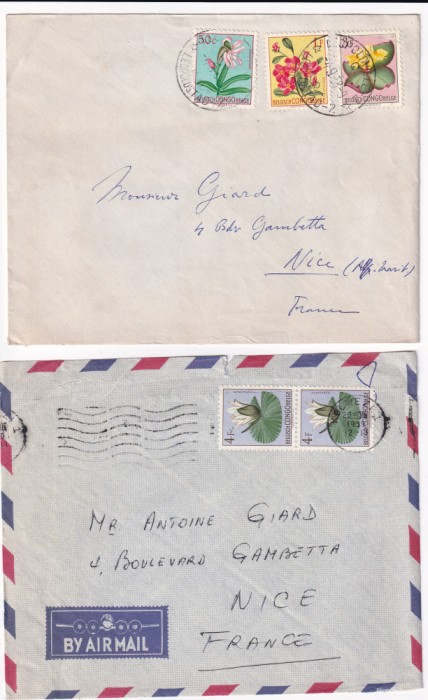 50c
BELGISCH CONGO BELGE
BELGISCH CONGO BELGE
BELGISCH CONGO BELGE
Monsieur Giard
4 Bdv Gambetta
Nice (Alp. Marit)
France
4 F
BELGISCH CONGO BELGE
4 F
BELGISCH CONGO BELGE
MR ANTOINE GIARD
4, BOULEVARD GAMBETTA
NICE
FRANCE
BY AIR MAIL